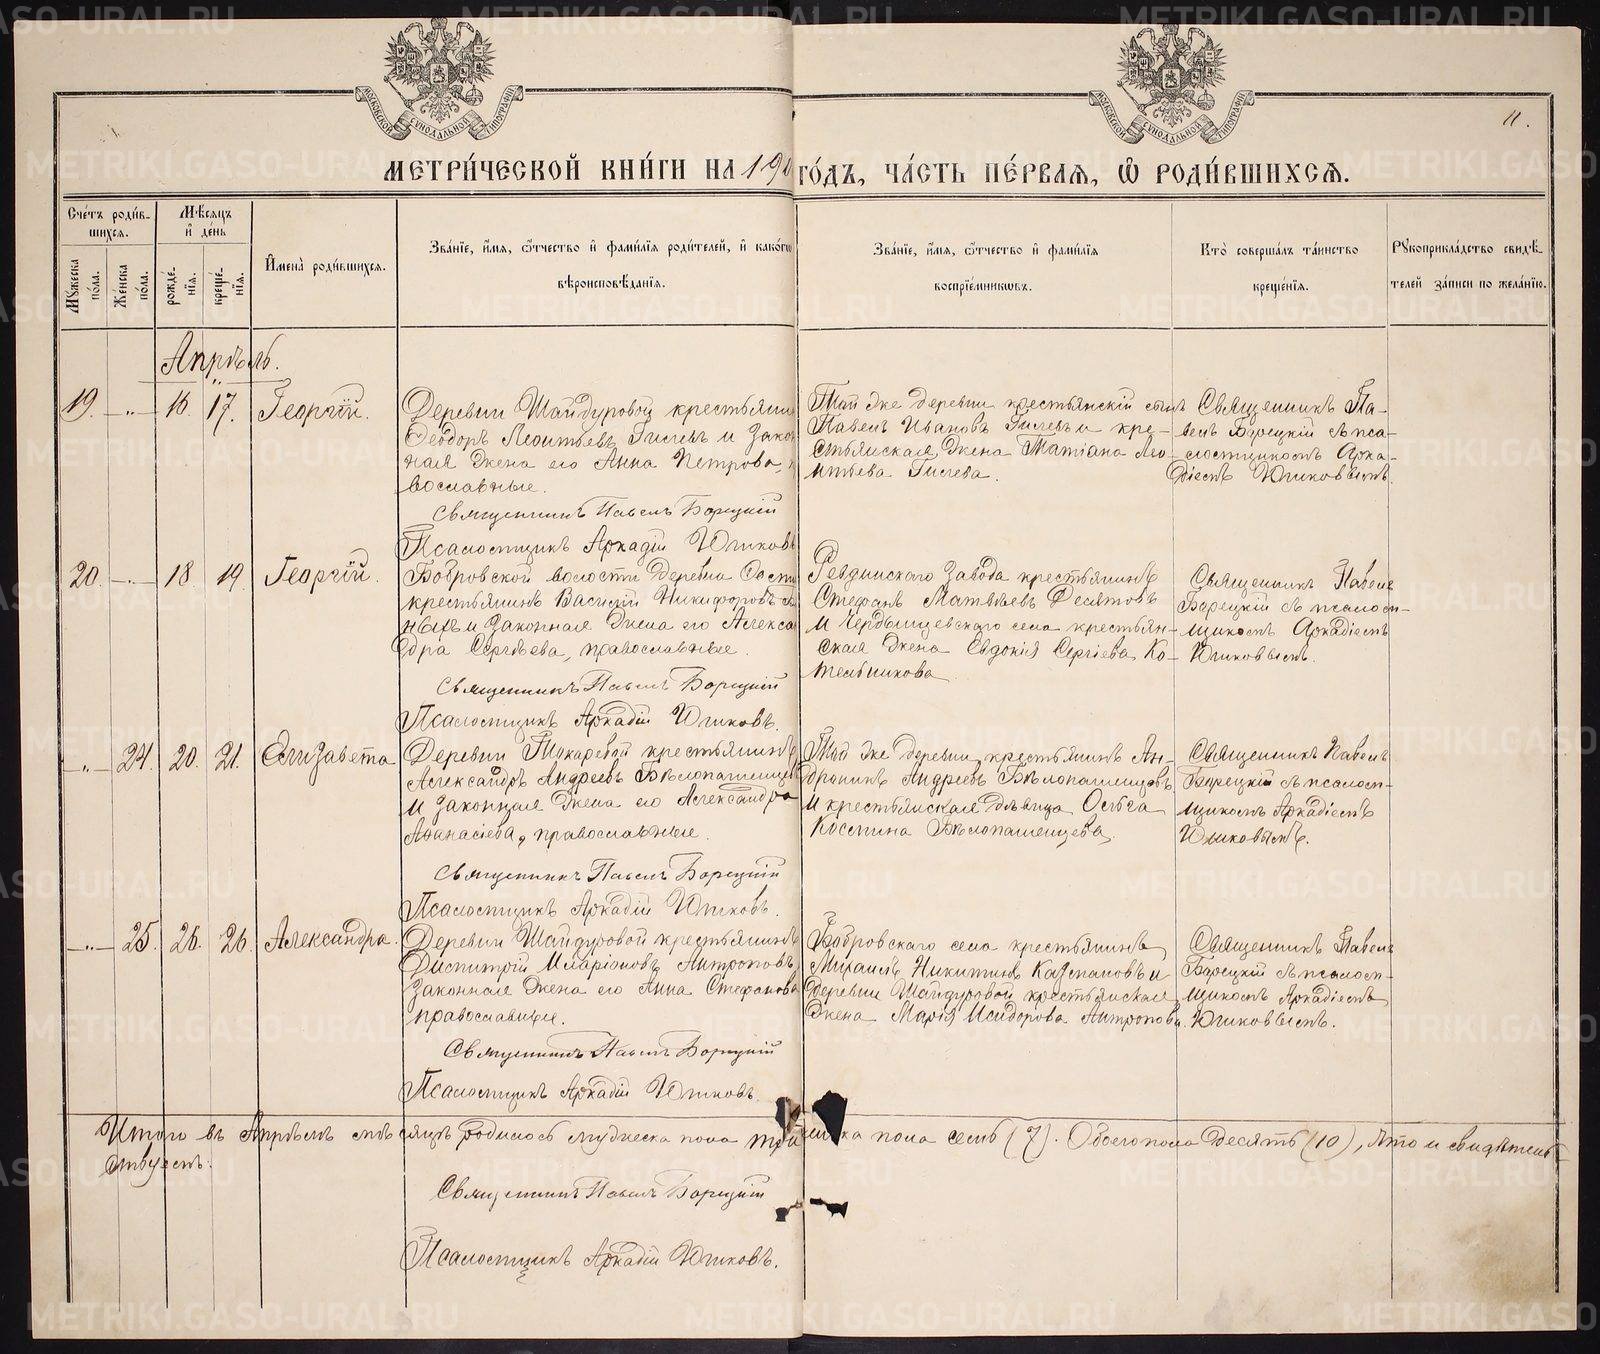 МОСКОВСКОЙ СѴНОДАЛЬНОЙ ТИПОГРАФІИ
МОСКОВСКОЙ СѴНОДАЛЬНОЙ ТИПОГРАФІИ
11.
МЕТРИ́ЧЕСКОЙ КНИ́ГИ НА 190 ГО́ДЪ, ЧА́СТЬ ПЕ́РВАЯ, Ѽ РОДИ́ВШИХСЯ.
Сче́тъ роди́в-
шихся.
Мꙋ́жеска по́ла.
Же́нска по́ла.
Мѣ́сяцъ и҆ де́нь
рожде́-
нїя.
креще́-
нїя.
И҆мена̀ роди́вшихся.
Зва́нїе, и҆́мя, ѻ҆́тчество и҆ фами́лїя роди́телей, и҆ како́гѡ
вѣроисповѣ́данїя.
Зва́нїе, и҆́мя, ѻ҆́тчество и҆ фами́лїя
воспрїе́мникѡвъ.
Кто̀ соверша́лъ та́инство
креще́нїя.
Рꙋкоприкла́дство свидѣ́-
телей за́писи по жела́нїю.
Апрѣль.
19. -„- 16. 17. Георгій.
Деревни Шайдуровой крестьянин
Ѳеодоръ Леонтьевъ Гилевъ и закон
ная жена его Анна Петрова,
вославные.
Священникъ Павелъ Борецкій
Псаломщикъ Аркадій Юшковъ
Той же деревни крестьянскій сынъ
Павелъ Ивановъ Гилевъ и кре-
стьянская жена Татіана Лео-
нтьева Гилева.
Священникъ Па-
велъ Борецкій съ пса-
ломщикомъ Арка-
діемъ Юшковымъ.
20. -„- 18. 19. Георгій.
Бобровской волости деревни
крестьянинъ Василій Никифоровъ
ныхъ и законная жена его Алекса
ндра Сергѣева, православные.
Священникъ Павелъ Борецкій
Псаломщикъ Аркадій Юшковъ.
Ревдинскаго завода крестьянинъ
Стефанъ Матвѣевъ Десятовъ
и Чердынцевскаго села крестьян-
ская жена Евдокія Сергіева Ко-
тельникова
Священникъ Павелъ
Борецкій съ псалом-
щикомъ Аркадіемъ
Юшковымъ.
-„- 24. 20. 21. Елизавета
Деревни Токаревой крестьянинъ
Александръ Андреевъ Бѣлопашенцевъ
и законная жена его Александра
Аѳанасіева, православные.
Священникъ Павелъ Борецкій
Псаломщикъ Аркадій Юшковъ.
Той же деревни крестьянинъ Ан-
дроникъ Андреевъ Бѣлопашенцевъ
и крестьянская дѣвица Ольга
Костина Бѣлопашенцева,
Священникъ Павелъ
Борецкій съ псалом-
щикомъ Аркадіемъ
Юшковымъ.
-„- 25. 26. 26. Александра.
Деревни Шайдуровой крестьянинъ
Димитрій Иларіоновъ Антроповъ
законная жена его Анна Стефанова
православные.
Священникъ Павелъ Борецкій
Псаломщикъ Аркадій Юшковъ.
Бобровскаго села крестьянинъ
Михаилъ Никитинъ Казмановъ и
деревни Шайдуровой крестьянская
жена Марія Исидорова Антропова.
Священникъ Павелъ
Борецкій съ псалом-
щикомъ Аркадіемъ
Юшковымъ.
Итого въ Апрѣлѣ мѣсяцѣ родилось мужеска пола три женска пола семь (7). Обоего пола десять (10), что и свидѣтель-
ствуемъ:
Священникъ Павелъ Борецкій
Псаломщикъ Аркадій Юшковъ.
METRIKI.GASO-URAL.RU